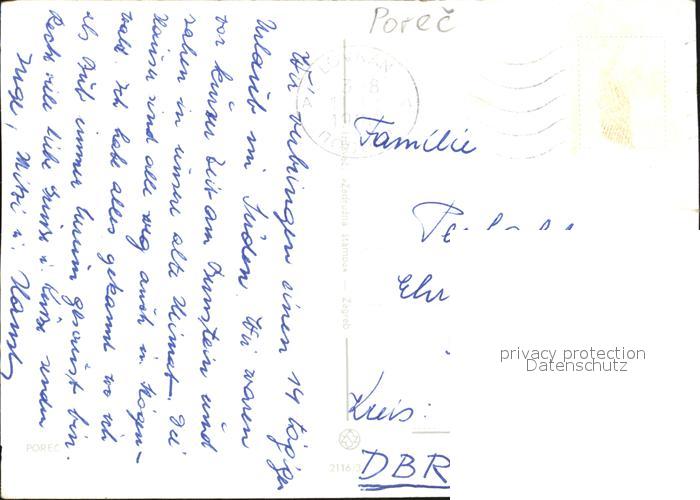 Poreč
Wir verbringen einen 14 tägigen
Urlaub im Süden. Wir waren
vor kurzer Zeit am und
sahen in unsere alte Heimat. Die
Häuser sind alle weg auch in
Ich habe alles gekannt wo ich
als Bub immer herum gesaust bin.
Recht viele liebe Grüsse u. Küsse senden
Inge, Mitzi u. Hansl
Familie
Ehr
Kreis:
DBR
privacy protection
Datenschutz
POREČ
2116/